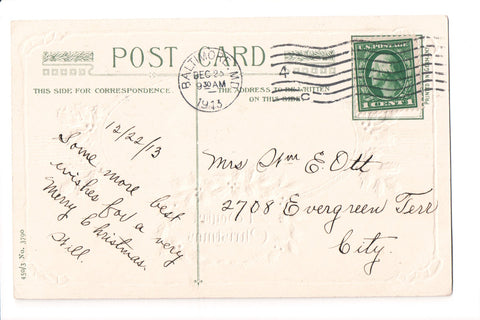 POST CARD
THIS SIDE FOR CORRESPONDENCE
THE ADDRESS TO BE WRITTEN
ON THIS SIDE
BALTIMORE, MD.
DEC 23
9 30 AM
1913
4
U.S. POSTAGE
1 CENT 1
12/22/13
Some more best
wishes for a very
Merry Christmas.
Will.
Mrs Wm E. Ott
2708 Evergreen Terr
City.
450/3 No. 3790